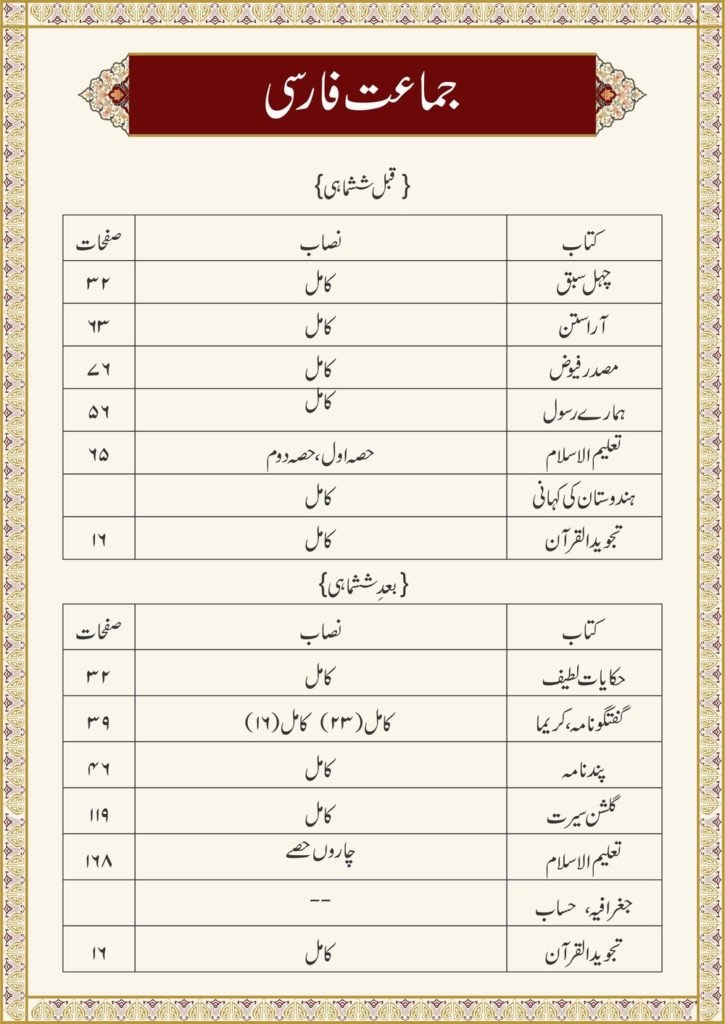 جماعت فارسی
{قبل ششماہی}
کتاب نصاب صفحات
چہل سبق کامل ۳۲
آراستن کامل ۶۳
مصدر فیوض کامل ۷۶
ہمارے رسول کامل ۵۶
تعلیم الاسلام حصہ اول، حصہ دوم ۶۵
ہندوستان کی کہانی کامل
تجوید القرآن کامل ۱۶
{بعدِ ششماہی}
کتاب نصاب صفحات
حکایات لطیف کامل ۳۲
گفتگو نامہ، کریما کامل (۲۳) کامل (۱۶) ۳۹
پند نامہ کامل ۴۶
گلشن سیرت کامل ۱۱۹
تعلیم الاسلام چاروں حصے ۱۶۸
جغرافیہ، حساب --
تجوید القرآن کامل ۱۶